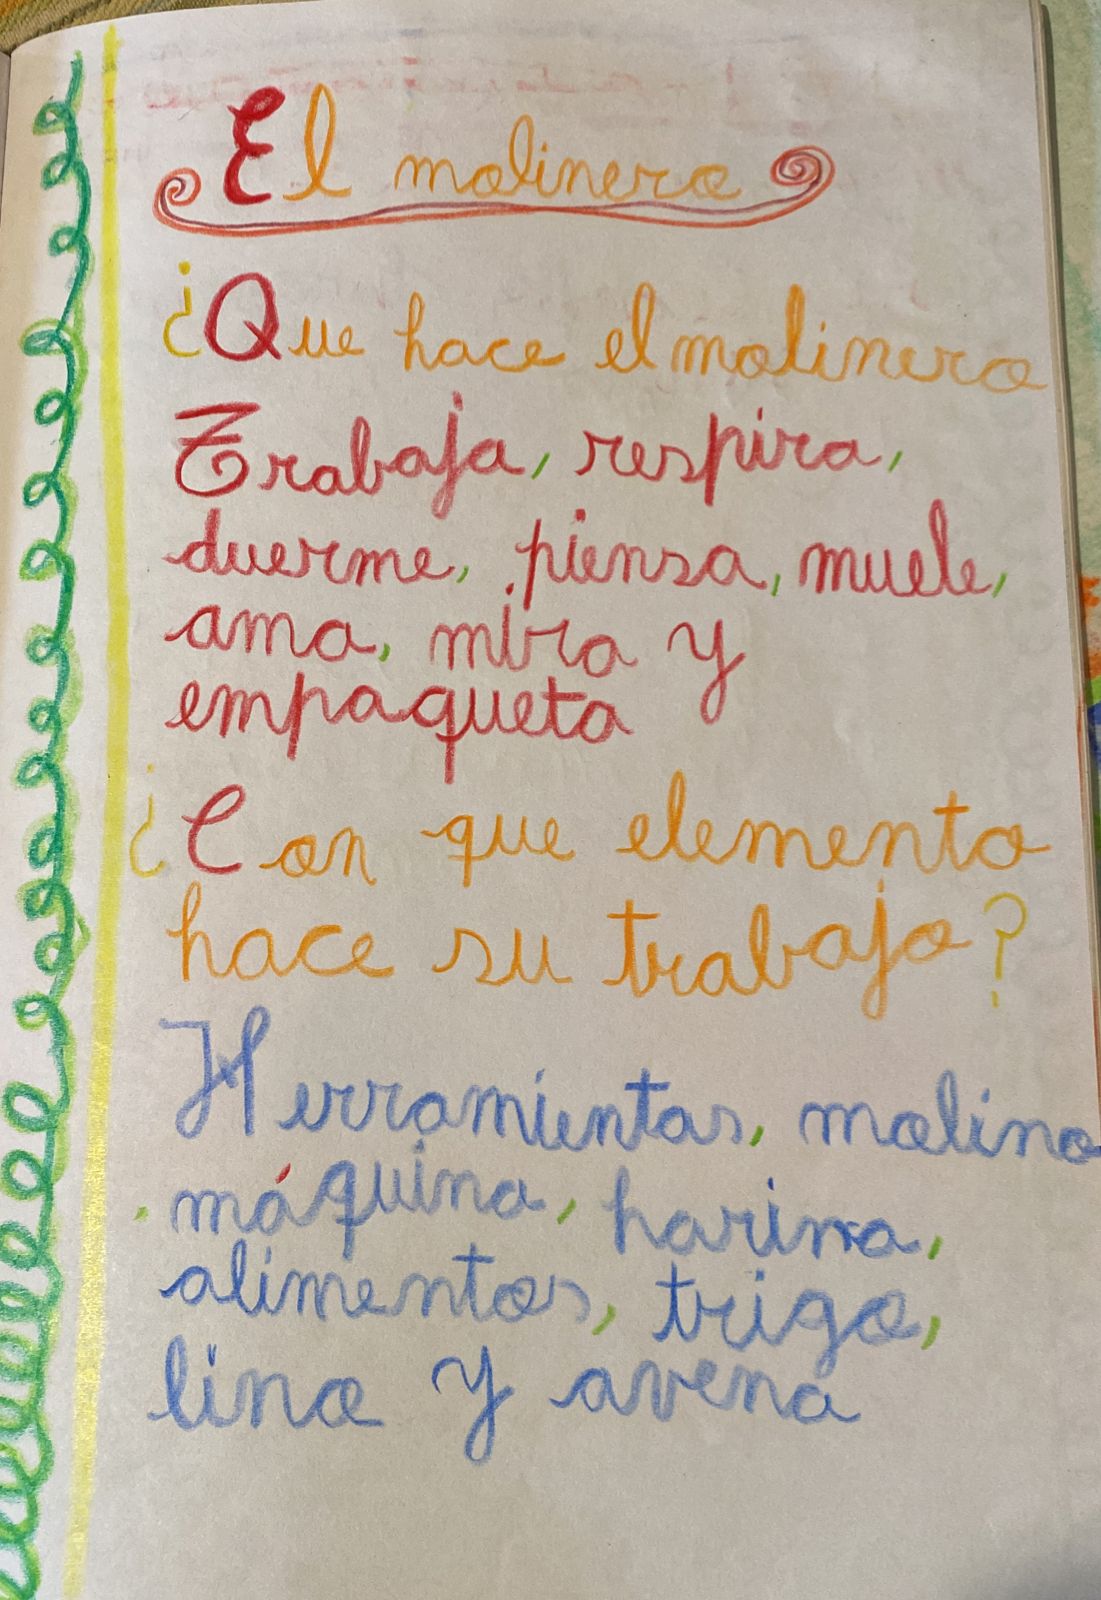 El molinero
¿Que hace el molinero
Trabaja, respira,
duerme, piensa, muele,
ama, mira y
empaqueta
¿Con que elemento
hace su trabajo?
Herramientas, molino
máquina, harina,
alimentos, trigo,
lino y avena